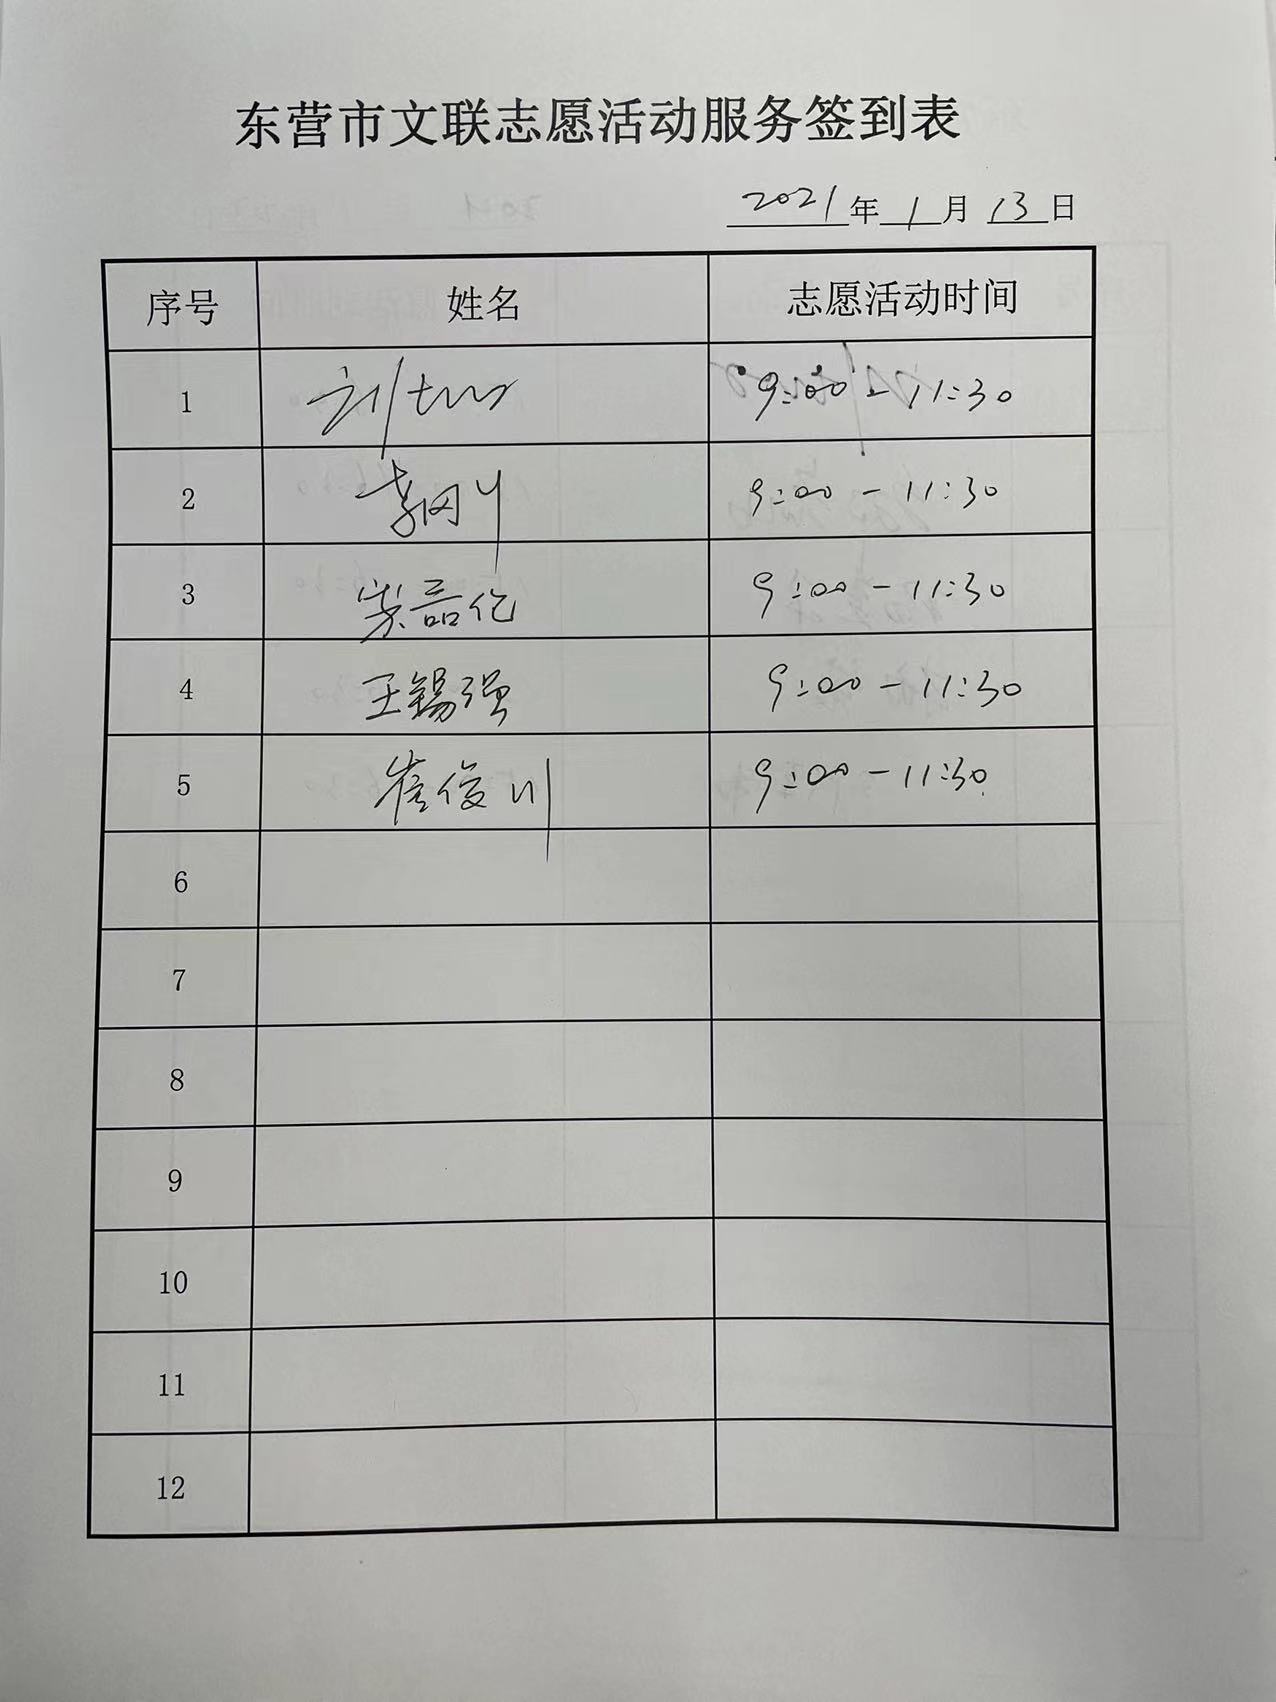 东营市文联志愿活动服务签到表
2021年1月13日
序号 姓名 志愿活动时间
1 9:00-11:30
2 李刚 9:00-11:30
3 9:00-11:30
4 王锡强 9:00-11:30
5 崔俊川 9:00-11:30
6
7
8
9
10
11
12